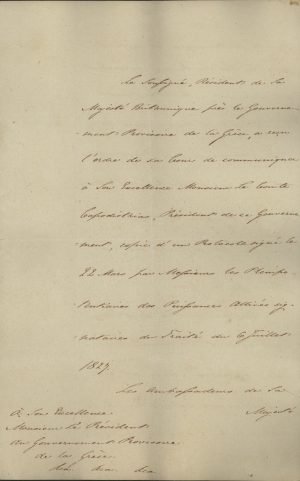 Le Soussigné, Résident de Sa
Majesté Britannique près le Gouverne-
ment Provisoire de la Grèce, a reçu
l'ordre de sa Cour de communiquer
à Son Excellence Monsieur le Comte
Capodistrias, Président de ce Gouverne-
ment, copie d'un Protocole signé le
22 Mars par Messieurs les Plenipo-
tentiaires des Puissances Alliées sig-
nataires du Traité du 6 Juillet
1827.
Les Ambassadeurs de Sa
Majesté
À Son Excellence
Monsieur le Président
du Gouvernement Provisoire
de la Grèce
&a. &a. &a